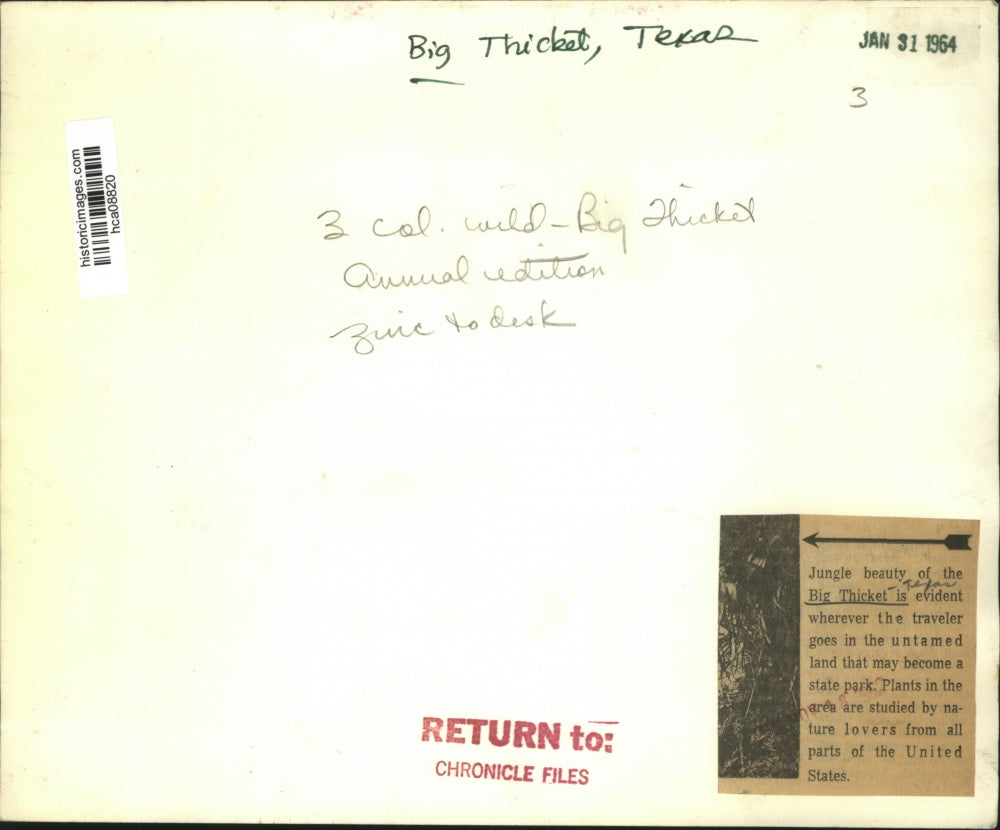 Big Thicket, Texas
JAN 31 1964
3
historicimages.com
hca08820
3 col. wild - Big Thicket
Annual edition
zinc to desk
Jungle beauty of the
Texas
Big Thicket is evident
wherever the traveler
goes in the untamed
land that may become a
state park. Plants in the
area are studied by na-
ture lovers from all
parts of the United
States.
RETURN to:
CHRONICLE FILES